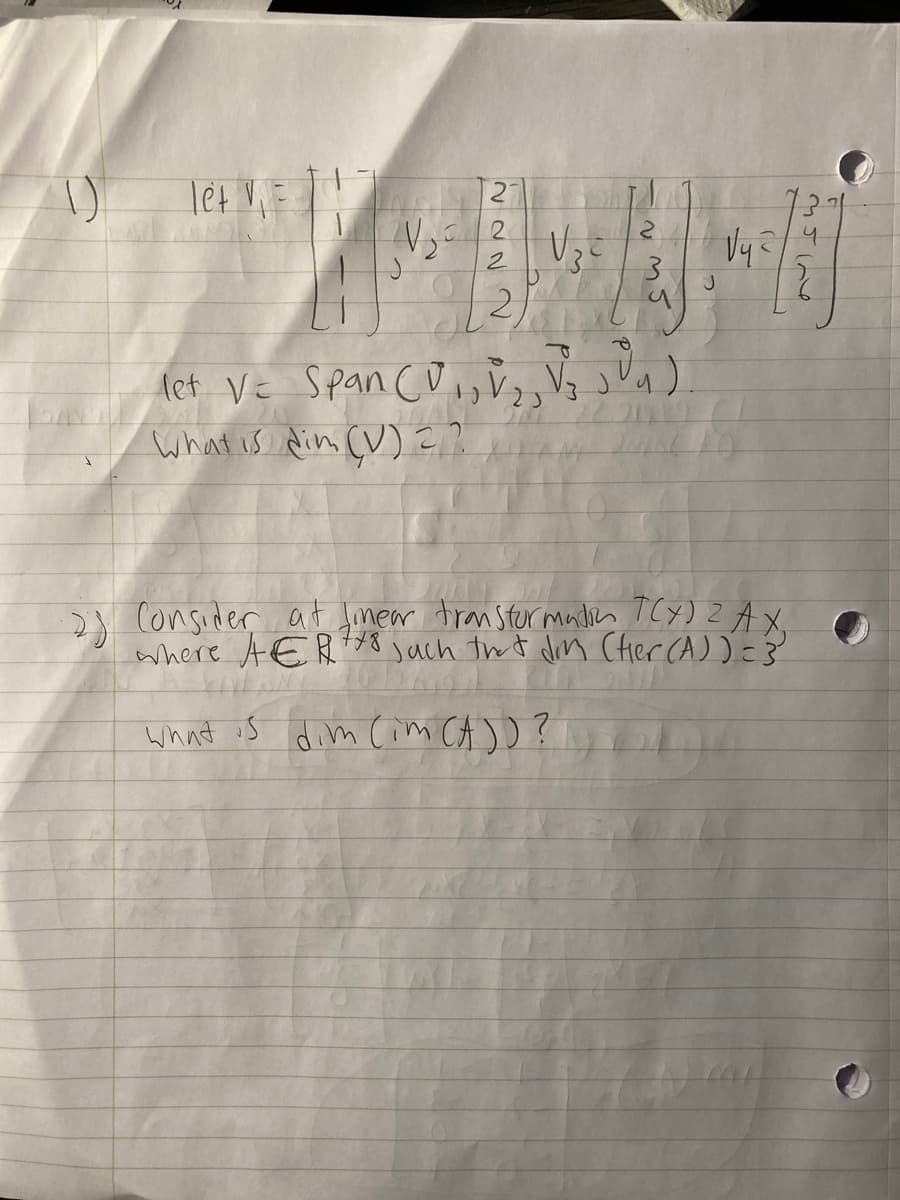 1) let V₁ = [1 1 1 1], V₂ = [2 2 2 2], V₃ = [1 2 3 4], V₄ = [3 4 5 6]
let V = Span (v⃗₁, v⃗₂, v⃗₃, v⃗₄).
What is dim (V) = ?
2) Consider at linear transformation T(x) = Ax,
where A ∈ R⁷ˣ⁸ such that dim (ker (A)) = 3
what is dim (im (A)) ?